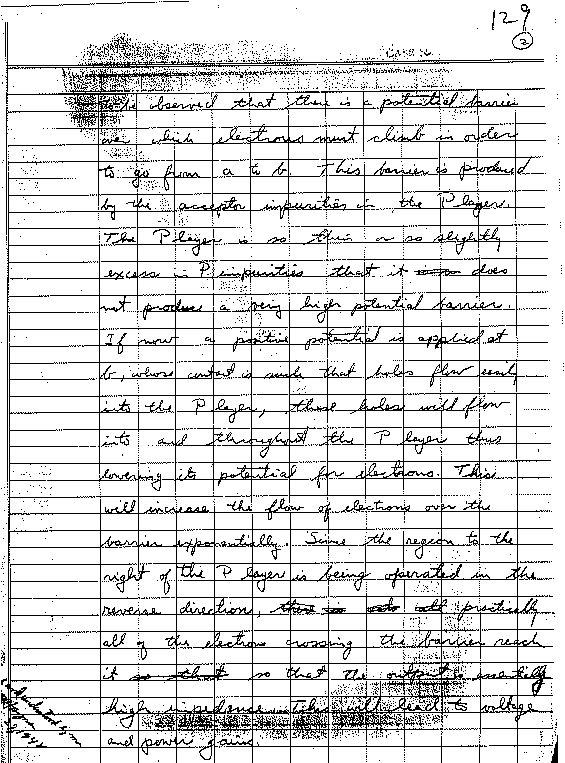 129
2
be observed that there is a potential barrier
over which electrons must climb in order
to go from a to b. This barrier is produced
by the acceptor impurities in the P layer.
The P layer is so thin or so slightly
excess in P impurities that it does
not produce a very high potential barrier.
If now a positive potential is applied at
b, whose contact is such that holes flow easily
into the P layer, these holes will flow
into and throughout the P layer thus
lowering its potential for electrons. This
will increase the flow of electrons over the
barrier exponentially. Since the region to the
right of the P layer is being operated in the
reverse direction, practically
all of the electrons crossing the barrier reach
it so that so that the output is essentially
high impedance. This will lead to voltage
and power gain.